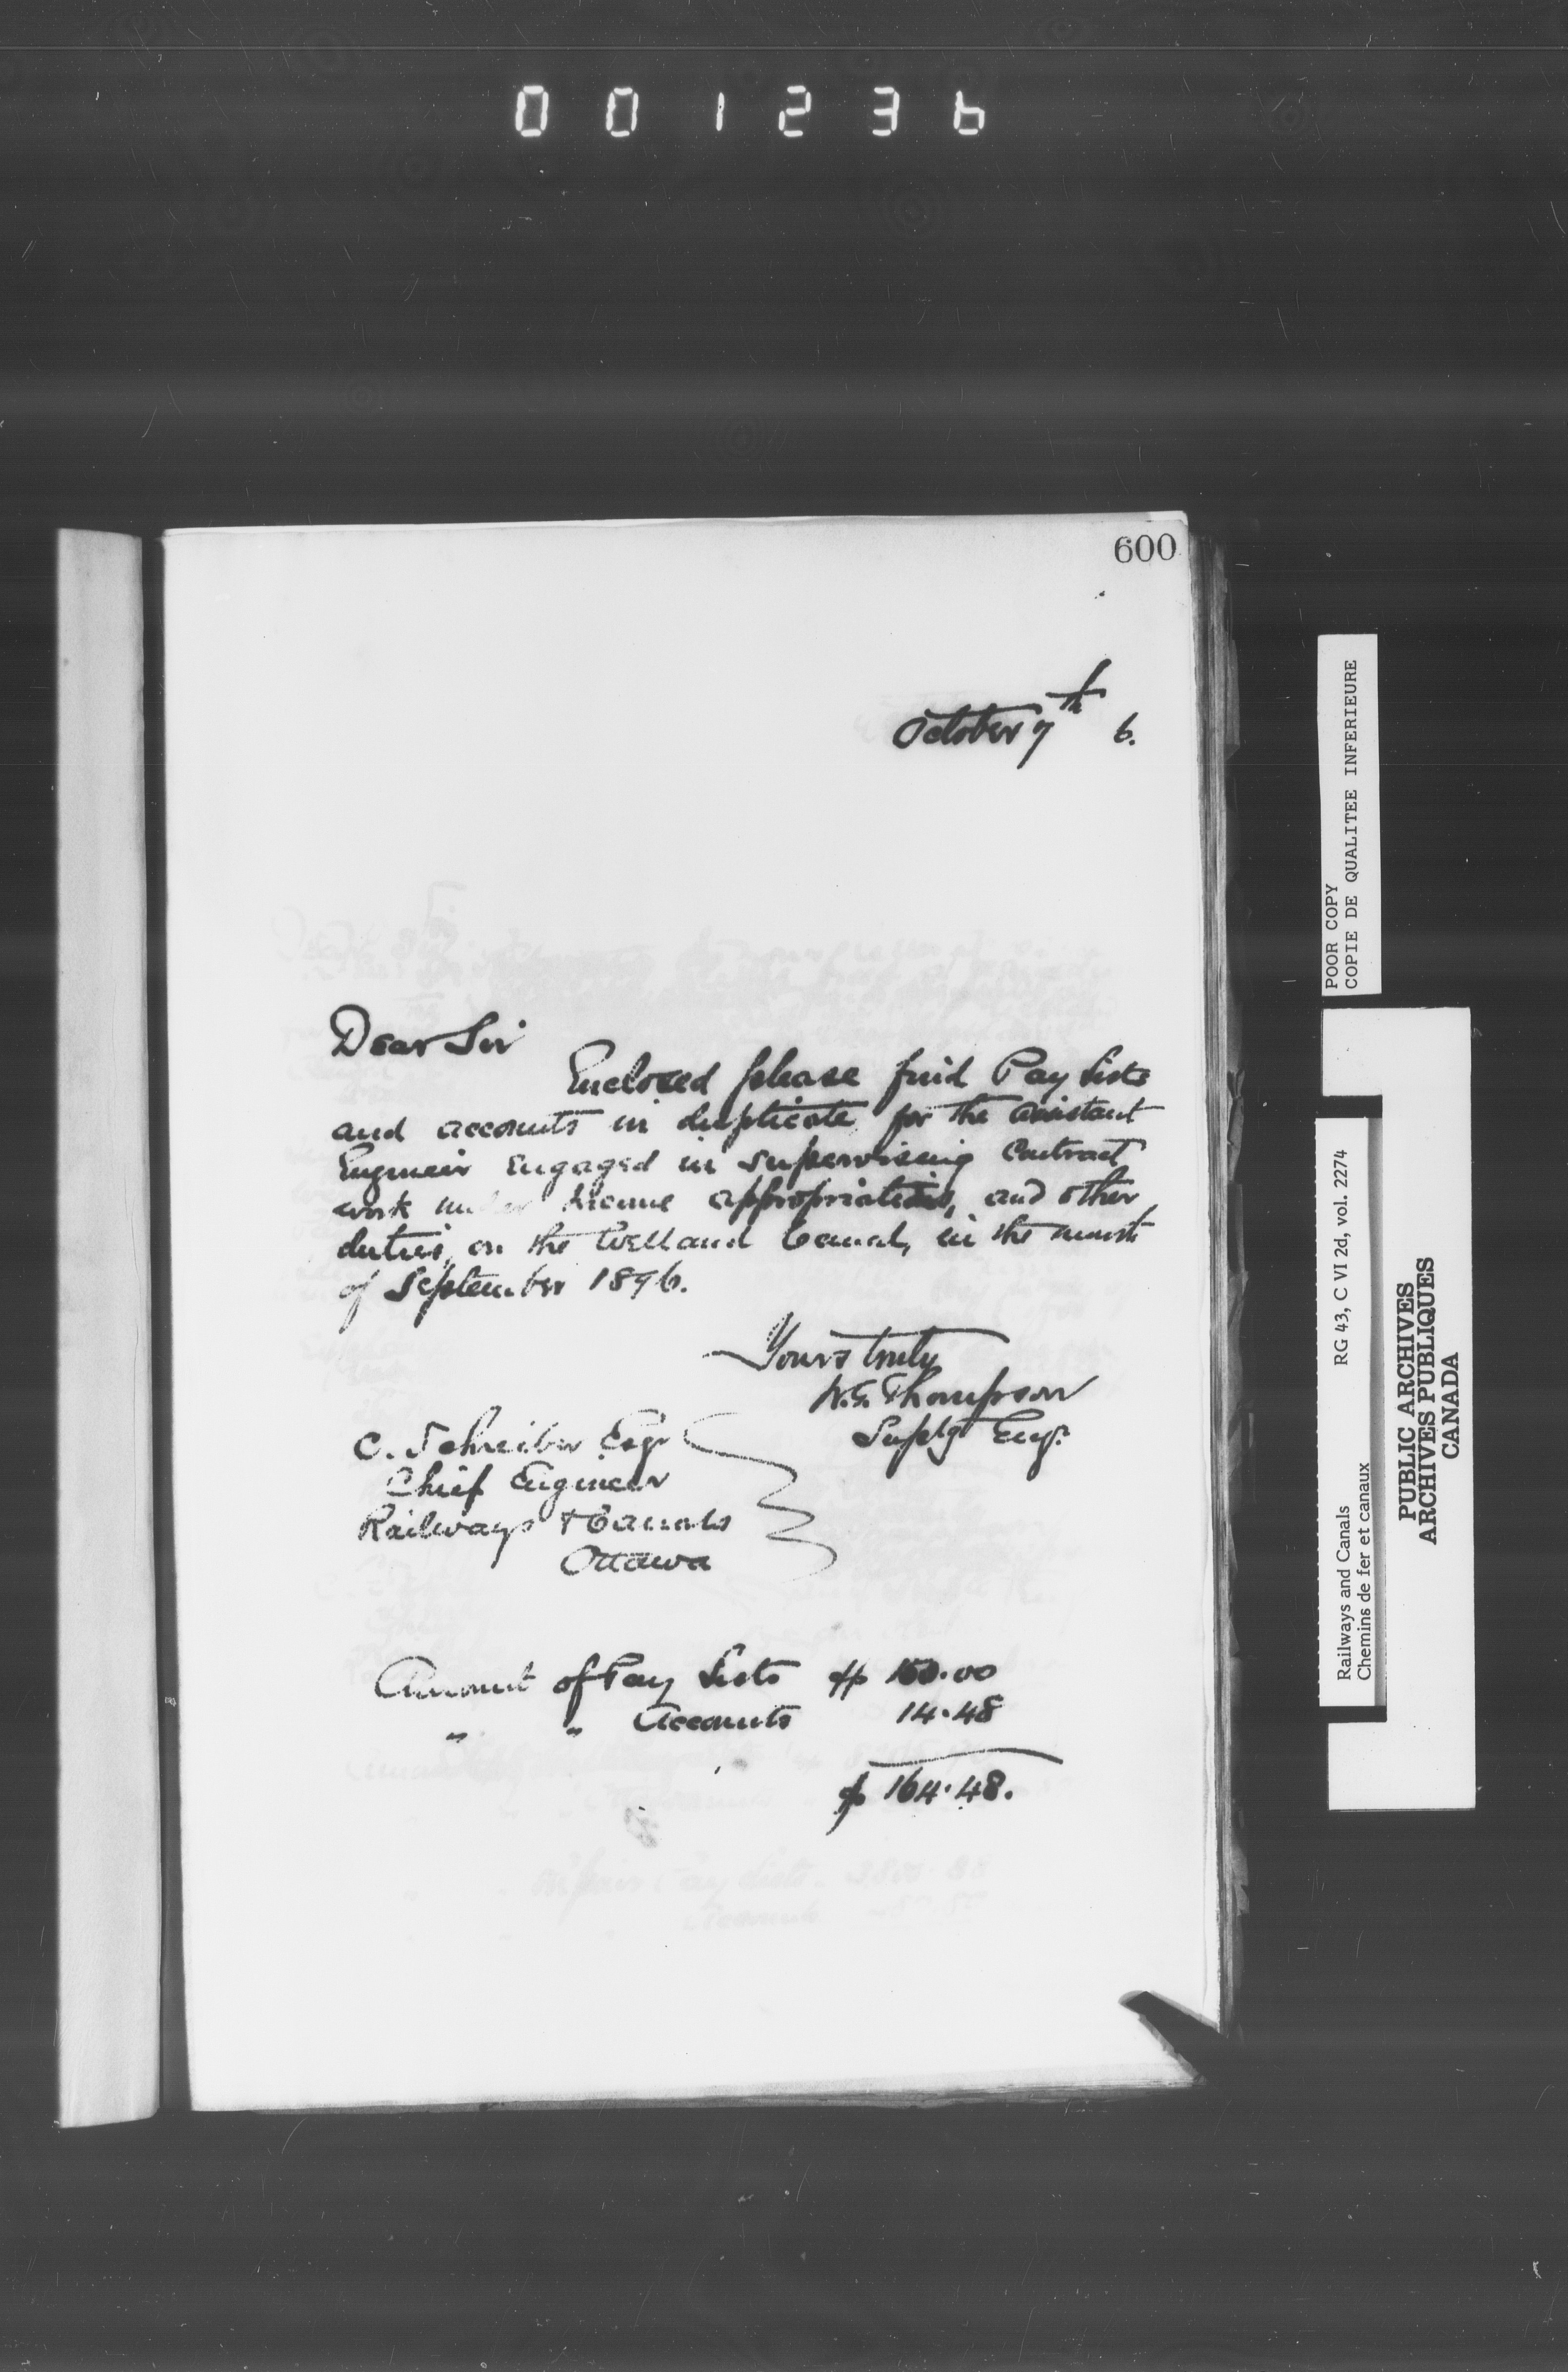 001236
600
October 7th 6.
Dear Sir
Enclosed please find Pay Lists
and accounts in duplicate for the Assistant
Engineer engaged in supervising Contract
work under Income appropriations, and other
duties, on the Welland Canal, in the month
of September 1896.
Yours truly
W.G. Thompson
Suptg Engr.
C. Schreiber Esqr
Chief Engineer
Railways & Canals
Ottawa
Amount of Pay Lists $ 150.00
" " Accounts 14.48
$ 164.48.
POOR COPY
COPIE DE QUALITEE INFERIEURE
Railways and Canals RG 43, C VI 2d, vol. 2274
Chemins de fer et canaux
PUBLIC ARCHIVES
ARCHIVES PUBLIQUES
CANADA